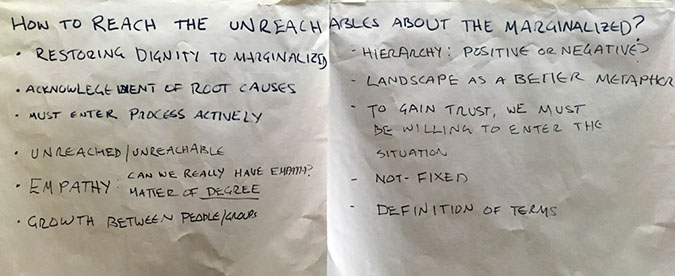 HOW TO REACH THE UNREACHABLES ABOUT THE MARGINALIZED?
• RESTORING DIGNITY TO MARGINALIZED
• ACKNOWLEGEMENT OF ROOT CAUSES
• MUST ENTER PROCESS ACTIVELY
• UNREACHED/UNREACHABLE
• EMPATHY: CAN WE REALLY HAVE EMPATHY?
MATTER OF DEGREE
• GROWTH BETWEEN PEOPLE/GROUPS
- HIERARCHY: POSITIVE OR NEGATIVE?
- LANDSCAPE AS A BETTER METAPHOR
- TO GAIN TRUST, WE MUST
BE WILLING TO ENTER THE
SITUATION
- NOT-FIXED
- DEFINITION OF TERMS